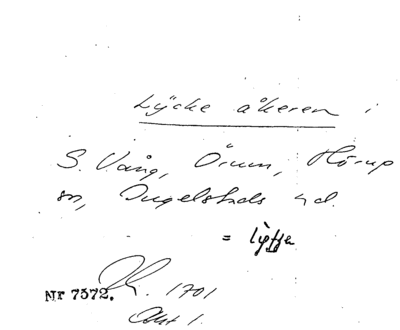 Lÿcke åkeren i
S. Vång, Örum, Hörup
sn, Ingelstads hd.
= lÿffe
Nr 7572. 1701
Akt 1.